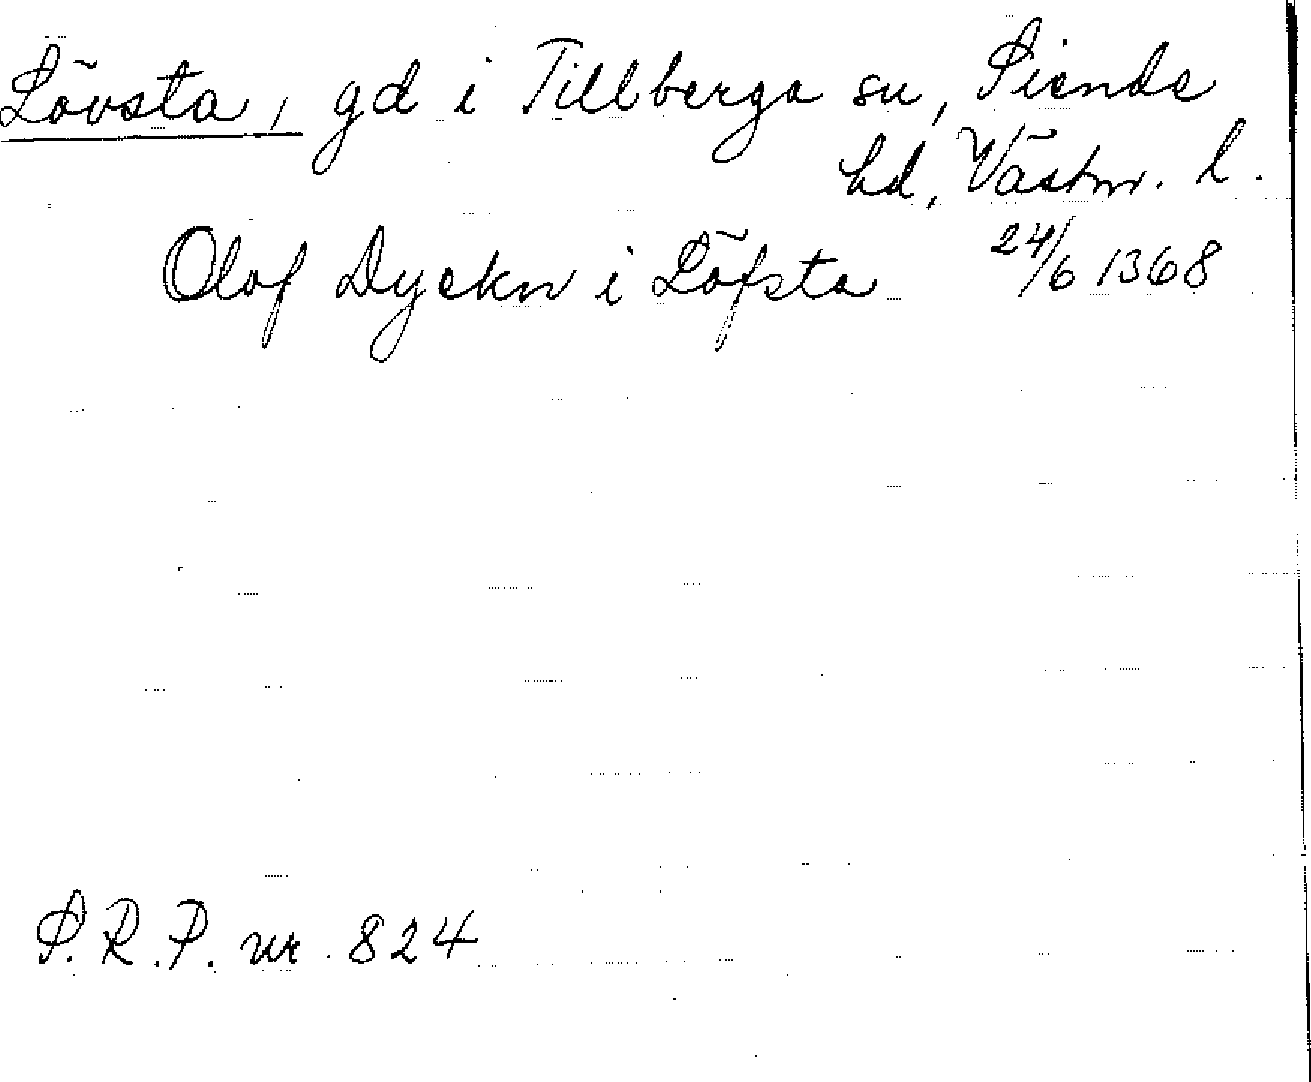 Lövsta, gd i Tillberga sn, Siende
hd, Västm. l.
Olof Dyekn i Löfsta 24/6 1368
S.R.P. nr. 824